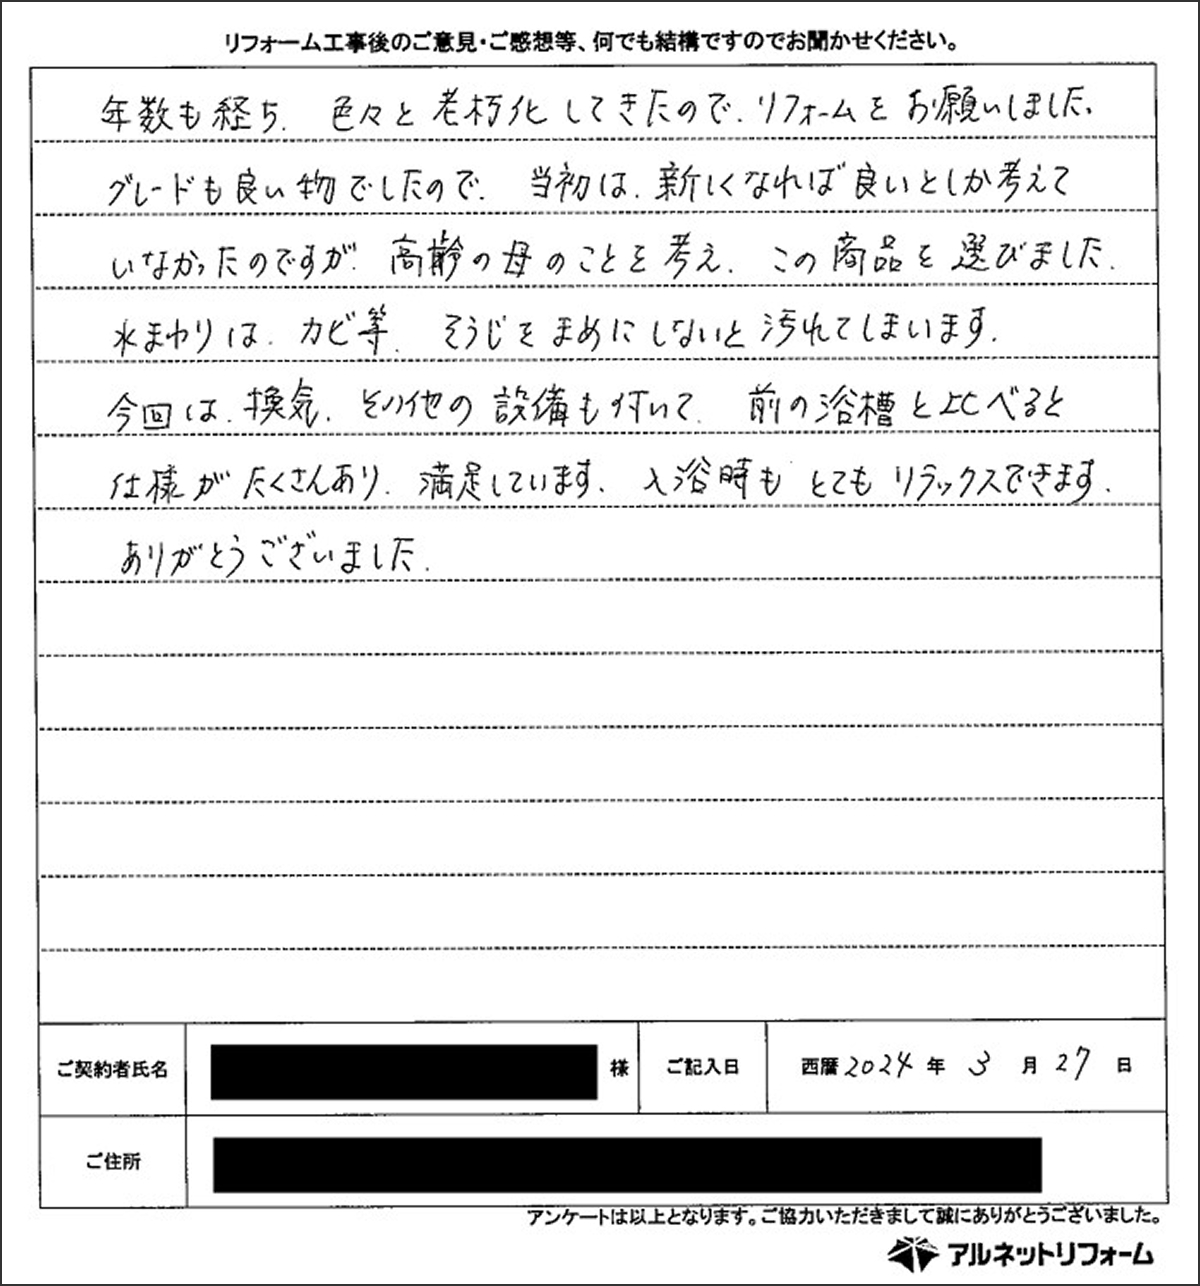 リフォーム工事後のご意見・ご感想等、何でも結構ですのでお聞かせください。
年数も経ち、色々と老朽化してきたので、リフォームをお願いしました、
グレードも良い物でしたので、当初は、新しくなれば良いとしか考えて
いなかったのですが、高齢の母のことを考え、この商品を選びました.
水まわりは、カビ等、そうじをまめにしないと汚れてしまいます.
今回は、換気、その他の設備も付いて、前の浴槽と比べると
仕様がたくさんあり、満足しています、入浴時もとてもリラックスできます.
ありがとうございました.
ご契約者氏名 様 ご記入日 西暦2024年3月27日
ご住所
アンケートは以上となります。ご協力いただきまして誠にありがとうございました。
アルネットリフォーム